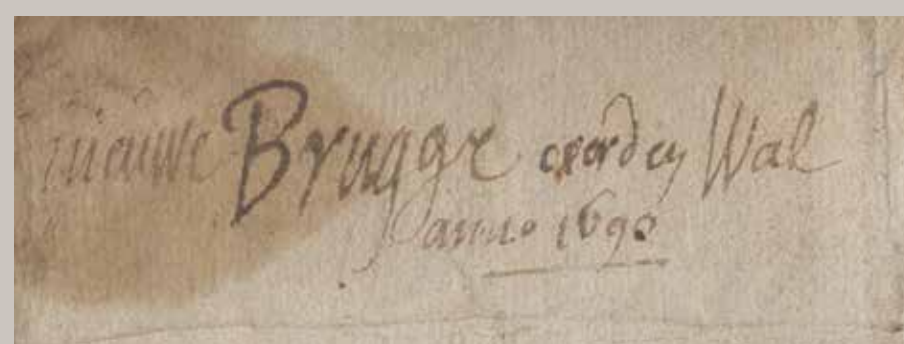 nieuwe Brugge over den Wal
anno 1690